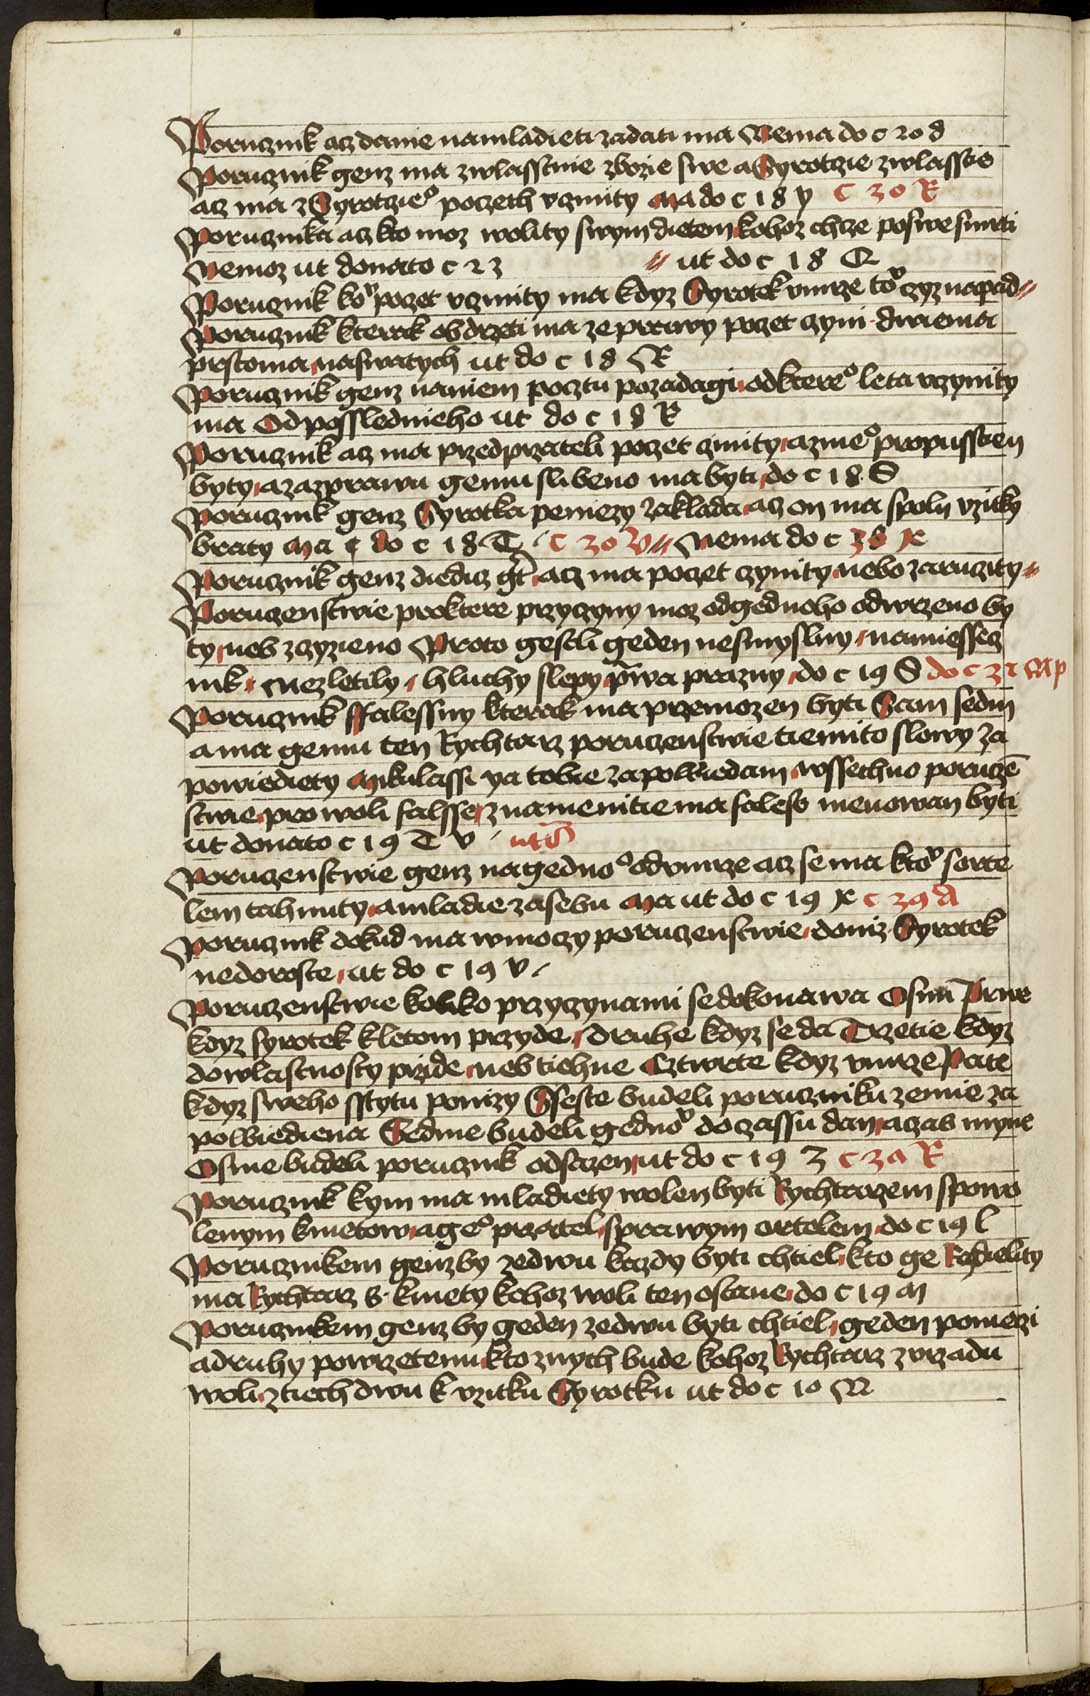 Poruznik acz danie namladieti zadati ma Nema do c 20 d
Poruznik genz ma zwlasstnie zbozie swe a Syrotczie zwlasstie
acz ma z Syrotczieº poczeth vczinity Ma do c 18 y C 30 R
Poruznika acz kto moz wolity swym dietem kohoz chcze poswe smrti
Nemoz ut donato c 23 // ut do c 18 Q
Poruznik koº poczet vczinity ma kdyz Syrotek vmrze toº czyz napad//
Poruznik kterak obdrzeti ma ze prawy poczet czyni dwiema
prstoma naswatych ut do c 18 R
Poruznik genz naniem pocztu pozadagi odktereº leta vczynity
ma Od posslednieho ut do c 18 R
Poruznik acz ma przed prateli poczet czinity aznieº propusstien
byty azazprawu gemu slibeno ma byti do c 18 S
Poruznik genz Syrotka peniezy zaklada acz on ma spolu vzitky
braty Ma c do c 18 T C 30 V // Nema do c 38 X
Poruznik genz diedicz gt acz ma poczet czynity nebo zaruczity //
Poruzenstwie proktere przyczyny moz odgednoho odwrzeno by
ty neb zczyzieno Proto gestli geden nesmyslny namiesscz
nik Nezletily hluchy slepy pwa prazny do c 19 S do c 32 M p
Poruznik ffalessny kterak ma przemozen byti Sam sedm
a ma gemu ten Rychtarz poruczenstwie tiemito slowy za
powiediety Mikulassi ya tobie zapowiedam wssechno poruczē
stwie pro woli falsse znamenitie ma fales menowan byti
ut donato c 19 T V
Poruzenstwie genz nagednoº odvmrze acz se ma ktoº sorte
lem tahnuty amladie zasebu Ma ut do c 19 X C 39 A
Poruznik dokud ma wmoczy poruzenstwie doniz Syrotek
nedoroste ut do c 19 V
Poruzenstwie koliko przyczynami se dokonawa Osmi Prwe
kdyz syrotek kletom przyde druhe kdyz se da Trzetie kdyz
dowlastnosty pride neb tiehne Cztwrte kdyz vmrze Pate
kdyz sweho sstytu ponizy Sseste budeli poruzniku zemie za
powiediena Sedme budeli gednoº do czassu dan aczas myne
Osme budeli poruznik odsazen ut do c 19 Z C 39 R
Poruznik kym ma mladiety wolen byti Rychtarzem spowo
lenym kmetow ageº pratel sprawym ortelem do c 19 l
Poruznikem genz by zedwu kazdy byti chtiel kto ge Rozdielity
ma Rychtarz s kmety kohoz woli ten ostane do c 19 M
Poruznikem genz by geden zedwu byti chtiel geden po meczi
adruhy powrzetenu kto znych bude kohoz Rychtarz zvrzadu
woli ztiech dwu k vzitku Syrotku ut do c 10 M